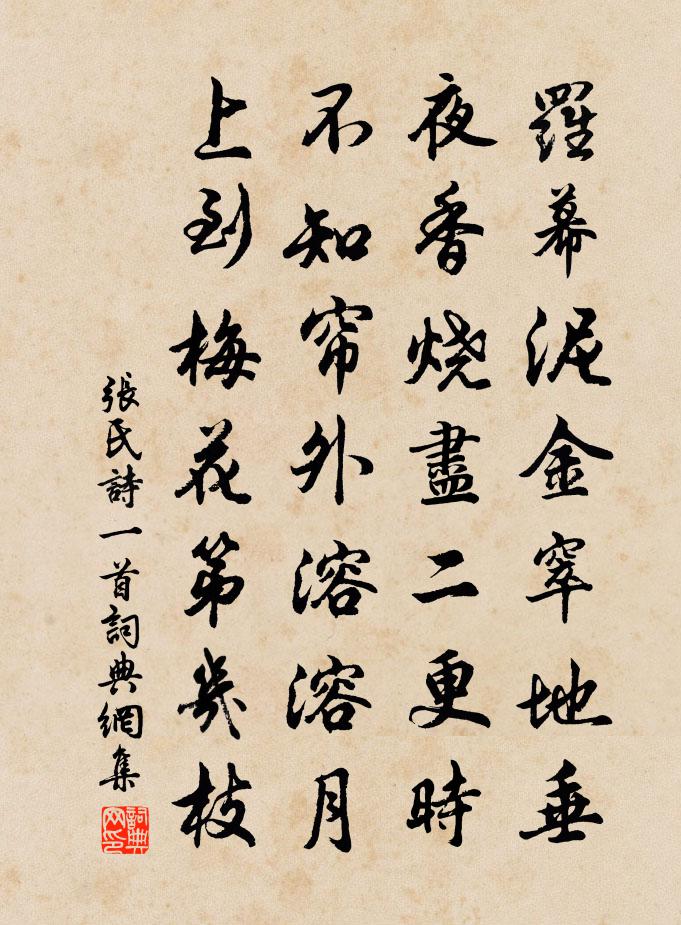 羅幕泥金窣地垂
夜香燒盡二更時
不知帘外溶溶月
上到梅花第幾枝
張氏詩一首詞典網集
詞典网印